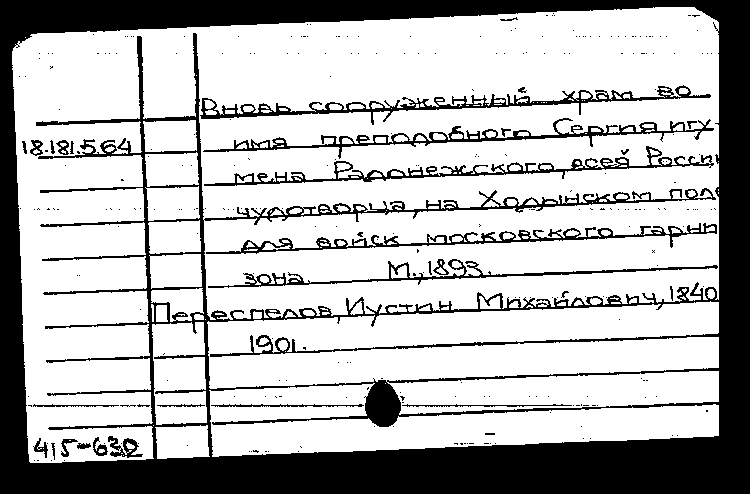 Вновь сооруженный храм во
18.181.5.64
имя преподобного Сергия, игу-
мена Радонежского, всея России
чудотворца, на Ходынском поле
для войск московского гарни
зона. М., 1893.
Переспелов, Иустин Михайлович, 1840
1901.
415-632